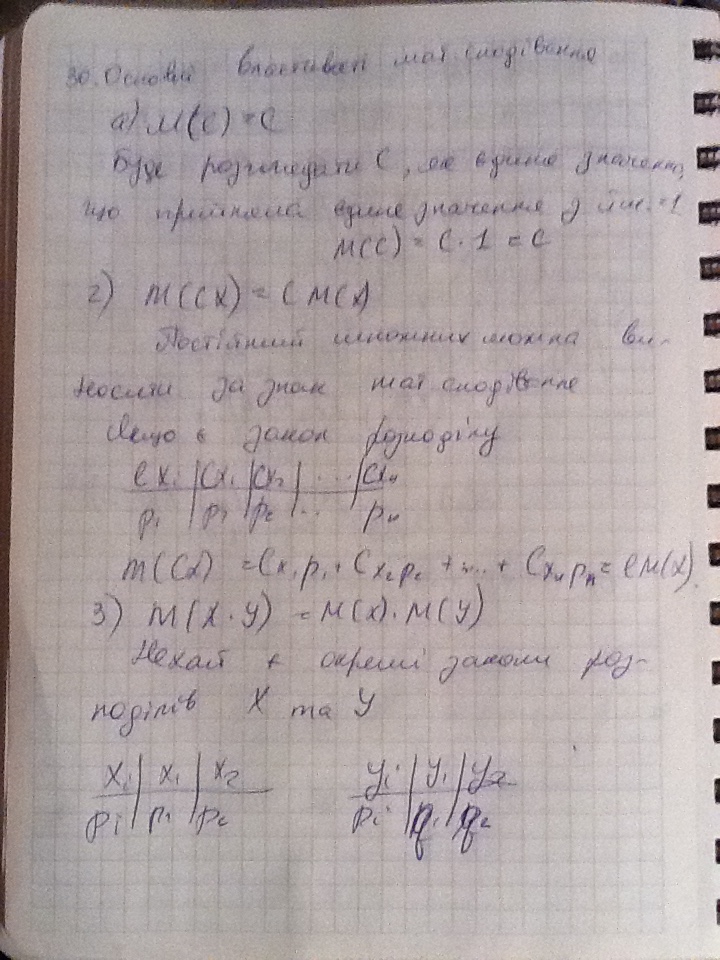 30. Основні властивості мат. сподівання
а) M(C) = C
Буде розглядати C, як єдине значення,
що приймає єдине значення з ймов. = 1
M(C) = C · 1 = C
2) M(CX) = C M(X)
Постійний множник можна ви-
носити за знак мат сподівання
Якщо є закон розподілу
Cx₁ | Cx₁ | Cx₂ | ... | Cxₙ
p₁ | p₁ | p₂ | ... pₙ
M(CX) = Cx₁p₁ + Cx₂p₂ + ... + Cxₙpₙ = CM(X).
3) M(X · Y) = M(X) · M(Y)
Нехай + окремі закони роз-
поділів X та Y
Xᵢ | x₁ | x₂ yᵢ | y₁ | y₂
pᵢ | p₁ | p₂ pᵢ | p₁ | p₂